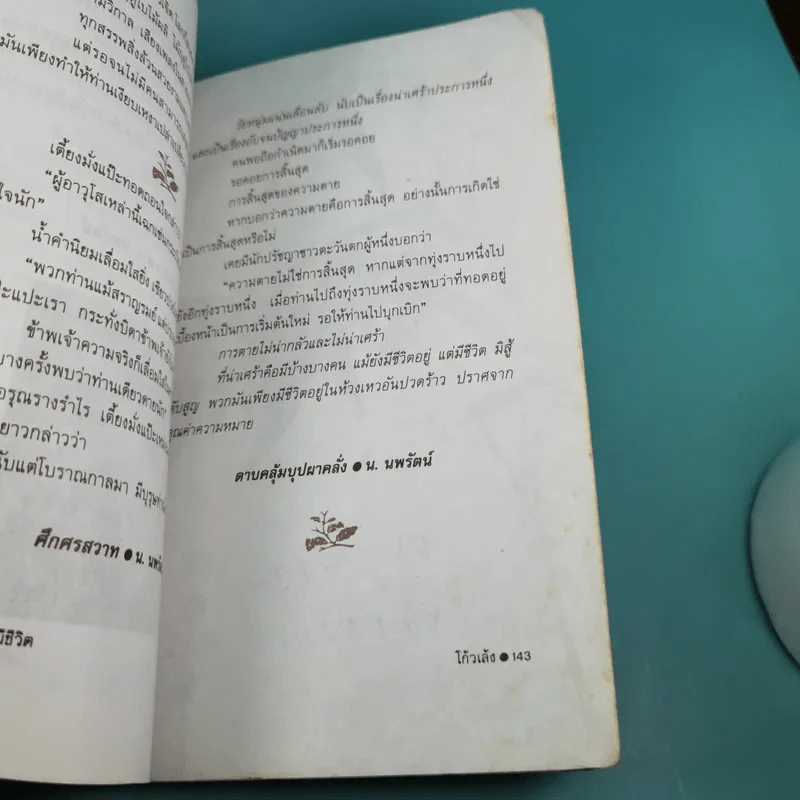 ทุกสรรพสิ่งล้วนสวยงาม
แต่รอจนไม่มีคนสามารถ
มันเพียงทำให้ท่านเงียบเหงาเปล่า
เตี้ยงมั่งแป๊ะทอดถอนใจ
"ผู้อาวุโสเหล่านี้เฉกเช่น
ใจนัก"
น้ำคำนิยมเลื่อมใสยิ่ง
"พวกท่านแม้สราญรมย์
แปะเรา กระทั่งบิดาข้าพเจ้า
ข้าพเจ้าความจริงก็เลื่อมใส
บางครั้งพบว่าท่านเดียวดายนัก"
อรุณรางรำไร เตี้ยงมั่งแป๊ะ
ยาวกล่าวว่า
นับแต่โบราณกาลมา มีบุรุษ
ศึกศรสวาท ● น. นพรัตน์
มีชีวิต
วัยหนุ่มแน่นเลือนลับ นับเป็นเรื่องน่าเศร้าประการหนึ่ง
และเป็นเรื่องอับจนปัญญาประการหนึ่ง
คนพอถือกำเนิดมาก็เริ่มรอคอย
รอคอยการสิ้นสุด
การสิ้นสุดของความตาย
หากบอกว่าความตายคือการสิ้นสุด อย่างนั้นการเกิดใช่
เป็นการสิ้นสุดหรือไม่
เคยมีนักปรัชญาชาวตะวันตกผู้หนึ่งบอกว่า
"ความตายไม่ใช่การสิ้นสุด หากแต่จากทุ่งราบหนึ่งไป
ยังอีกทุ่งราบหนึ่ง เมื่อท่านไปถึงทุ่งราบหนึ่งจะพบว่าที่ทอดอยู่
เบื้องหน้าเป็นการเริ่มต้นใหม่ รอให้ท่านไปบุกเบิก"
การตายไม่น่ากลัวและไม่น่าเศร้า
ที่น่าเศร้าคือมีบ้างบางคน แม้ยังมีชีวิตอยู่ แต่มีชีวิต มิสู้
ดับสูญ พวกมันเพียงมีชีวิตอยู่ในห้วงเหวอันปวดร้าว ปราศจาก
คุณค่าความหมาย
ดาบคลุ้มบุปผาคลั่ง ● น. นพรัตน์
โก้วเล้ง ● 143